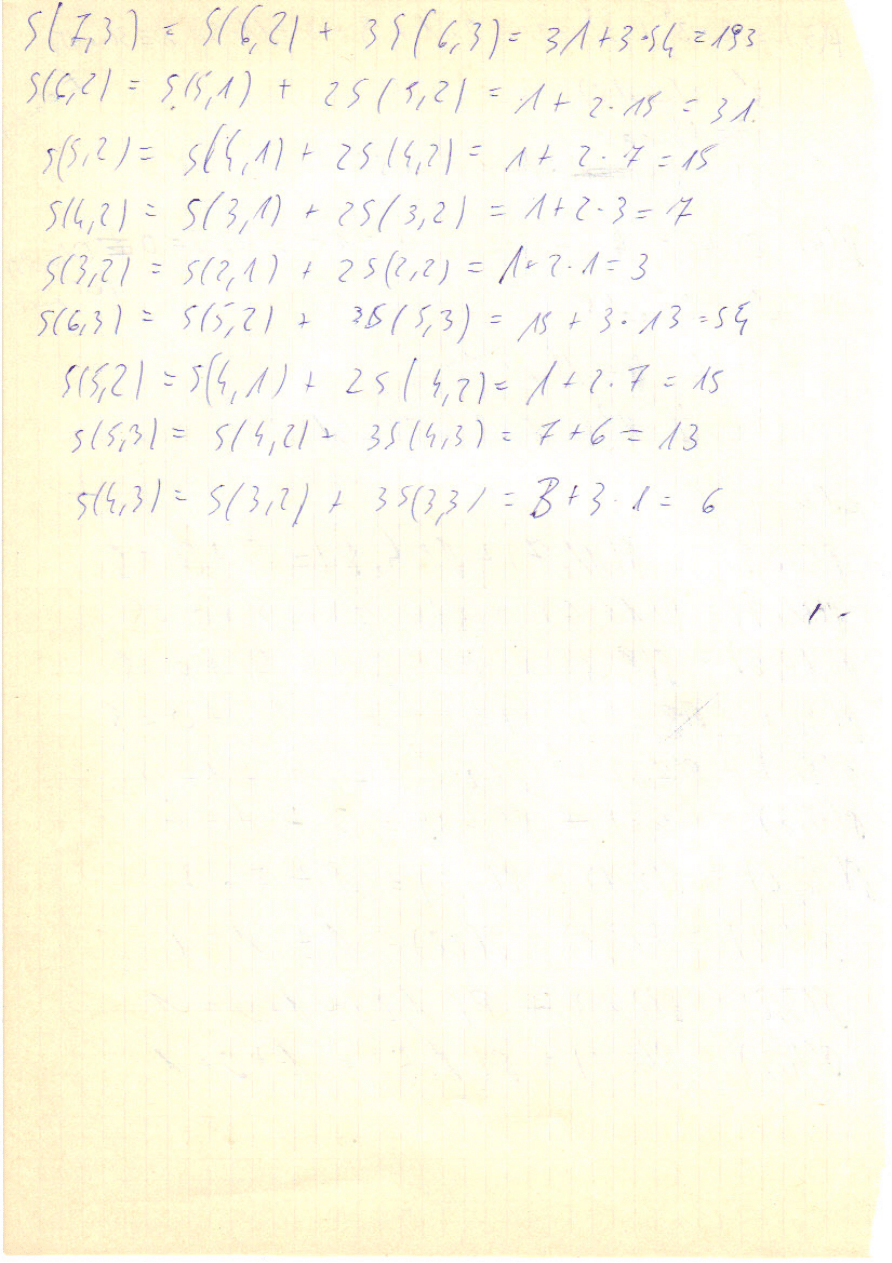 S(7,3) = S(6,2) + 3S(6,3) = 31+3·54 = 193
S(6,2) = S(5,1) + 2S(5,2) = 1 + 2·15 = 31.
S(5,2) = S(4,1) + 2S(4,2) = 1 + 2·7 = 15
S(4,2) = S(3,1) + 2S(3,2) = 1+2·3 = 7
S(3,2) = S(2,1) + 2S(2,2) = 1+2·1 = 3
S(6,3) = S(5,2) + 3S(5,3) = 15 + 3·13 = 54
S(5,2) = S(4,1) + 2S(4,2) = 1+2·7 = 15
S(5,3) = S(4,2) + 3S(4,3) = 7+6 = 13
S(4,3) = S(3,2) + 3S(3,3) = 3+3·1 = 6